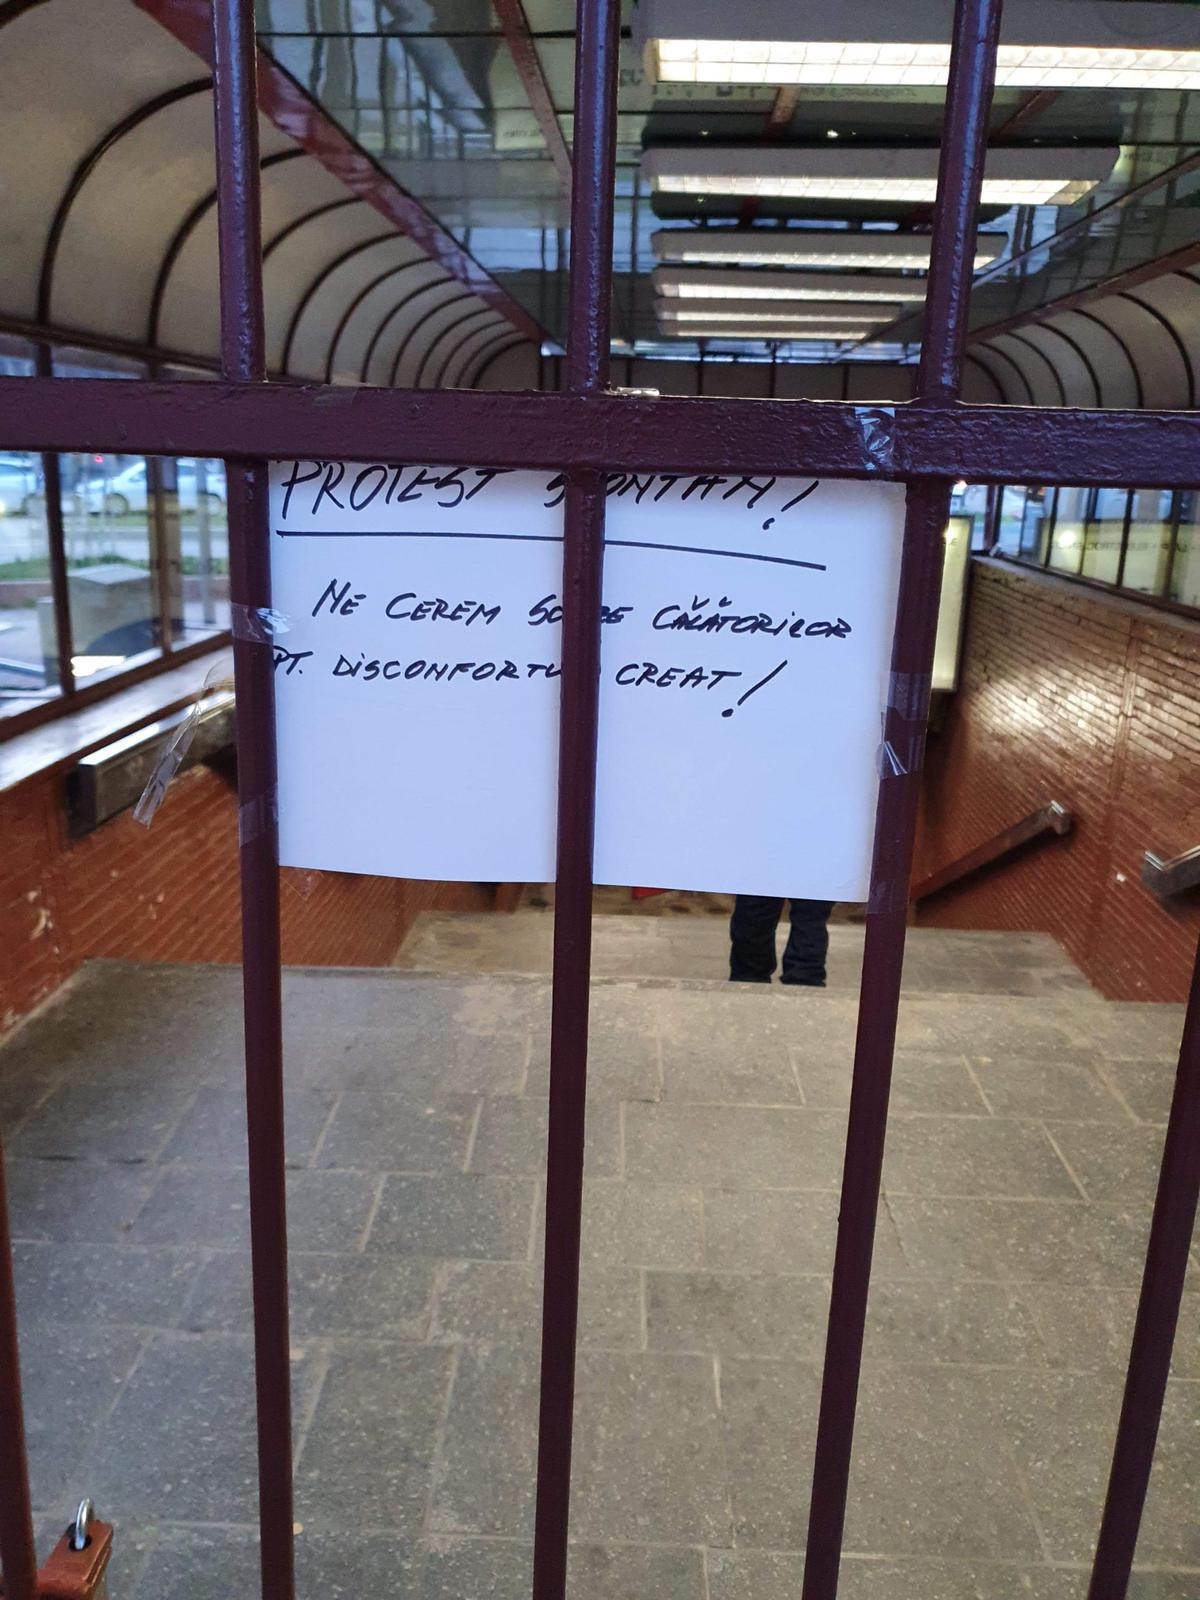 PROTEST SPONTAN!
NE CEREM SCUZE CĂLĂTORILOR
PT. DISCONFORTUL CREAT!